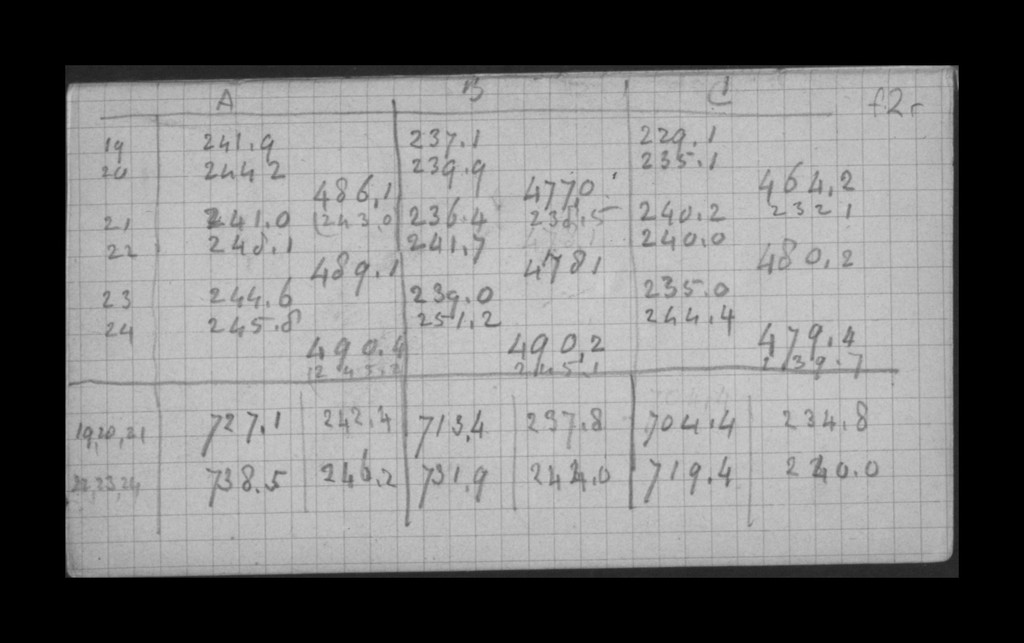 A B C f2r
19 241.9 237.1 229.1
20 2442 239.9 235.1
486,1 4770 464,2
21 241.0 (243.0 236.4 238.5 240.2 2321
22 248.1 241.7 240.0
489.1 4781 480,2
23 244.6 239.0 235.0
24 245.8 251.2 244.4
490.4 490,2 479.4
245.2 245.1 239.7
19,20,21 727.1 242.4 713.4 237.8 704.4 234.8
22,23,24 738.5 246.2 731.9 244.0 719.4 240.0